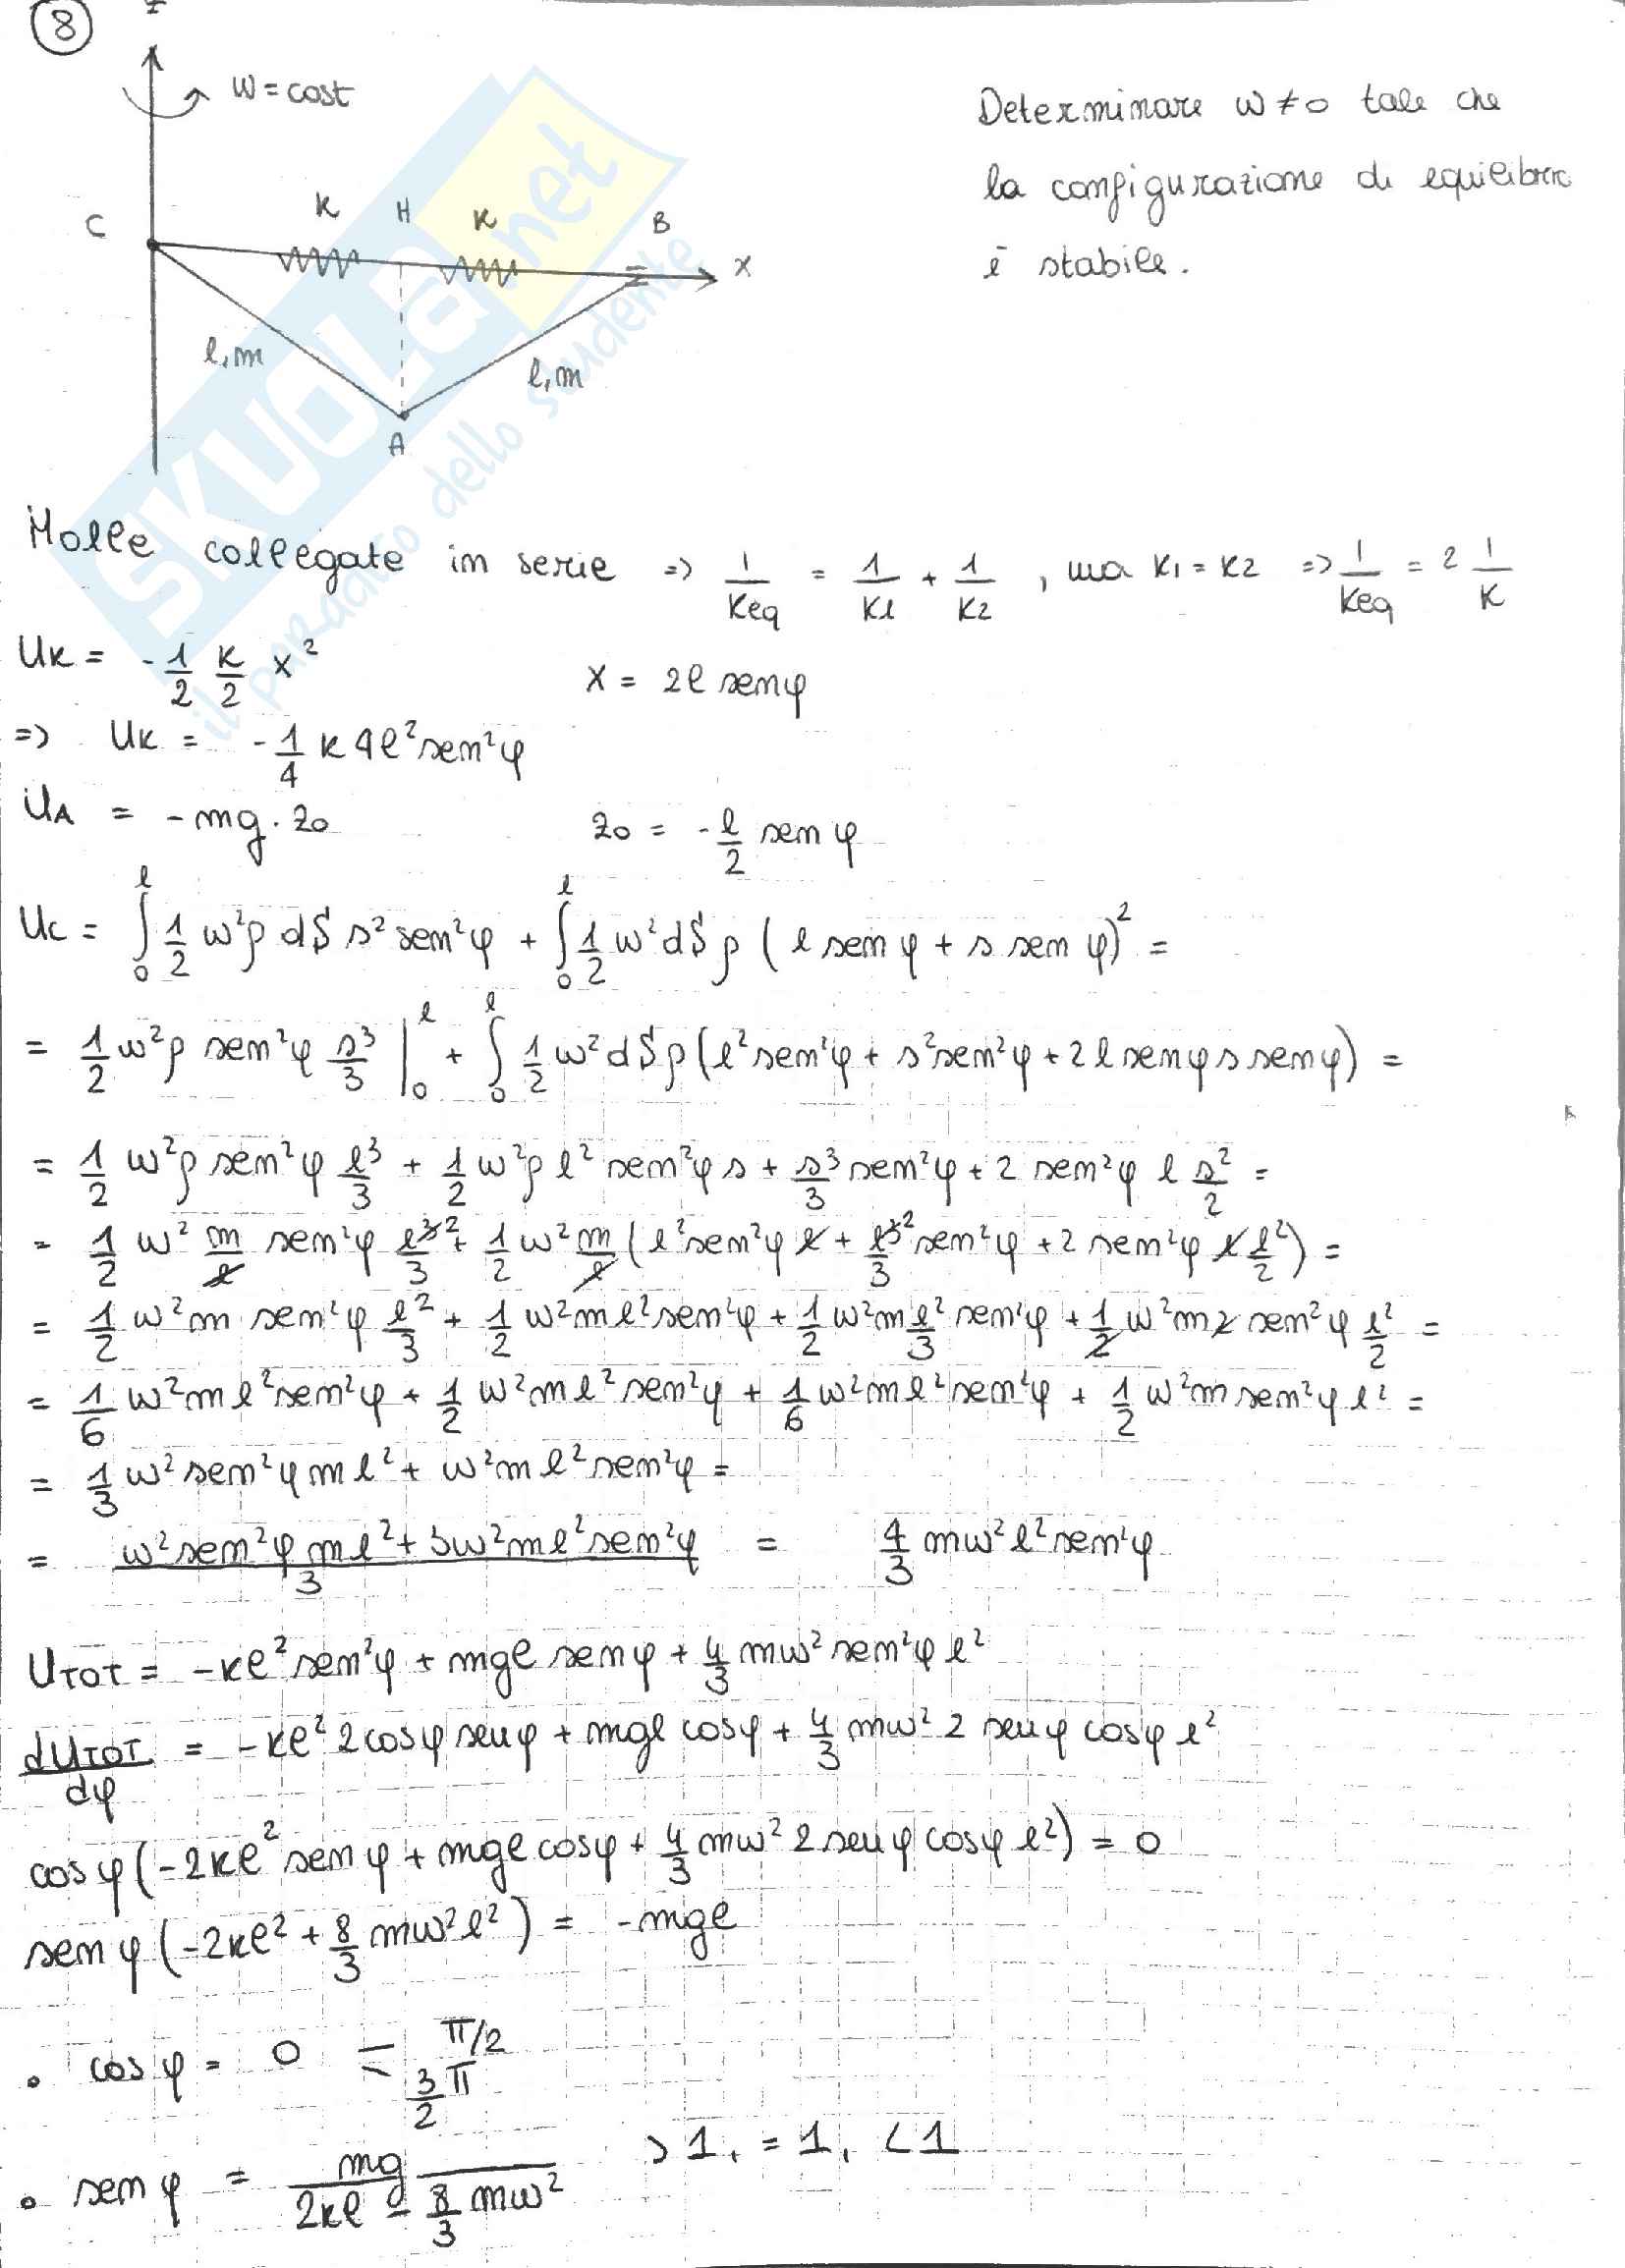 8
z
ω = cost
Determinare ω ≠ 0 tale che
la configurazione di equilibrio
è stabile.
C
K
H
K
B
x
l, m
l, m
A
SKUOLA.net
il paradiso dello studente
Molle collegate in serie => 1/Keq = 1/K1 + 1/K2 , ma K1 = K2 => 1/Keq = 2 1/K
UK = - 1/2 K/2 x² x = 2l senφ
=> UK = - 1/4 K 4l² sen²φ
UA = - mg · z0 z0 = - l/2 sen φ
Uc = ∫₀ˡ 1/2 ω²ρ dS s² sen²φ + ∫₀ˡ 1/2 ω² dS ρ (l sen φ + s sen φ)² =
= 1/2 ω²ρ sen²φ s³/3 |₀ˡ + ∫₀ˡ 1/2 ω² dS ρ (l² sen²φ + s² sen²φ + 2l senφ s senφ) =
= 1/2 ω²ρ sen²φ l³/3 + 1/2 ω²ρ l² sen²φ s + s³/3 sen²φ + 2 sen²φ l s²/2 =
= 1/2 ω² m/l sen²φ l³²/3 + 1/2 ω² m/l (l² sen²φ l + l³²/3 sen²φ + 2 sen²φ l l²/2) =
= 1/2 ω² m sen²φ l²/3 + 1/2 ω² m l² sen²φ + 1/2 ω² m l²/3 sen²φ + 1/2 ω² m 2 sen²φ l²/2 =
= 1/6 ω² m l² sen²φ + 1/2 ω² m l² sen²φ + 1/6 ω² m l² sen²φ + 1/2 ω² m sen²φ l² =
= 1/3 ω² sen²φ m l² + ω² m l² sen²φ =
= (ω² sen²φ m l² + 3ω² m l² sen²φ)/3 = 4/3 mω² l² sen²φ
UTOT = - Kl² sen²φ + mgl senφ + 4/3 mω² sen²φ l²
dUTOT/dφ = - Kl² 2cosφ senφ + mgl cosφ + 4/3 mω² 2 senφ cosφ l²
cosφ (-2Kl² sen φ + mgl cosφ + 4/3 mω² 2 senφ cosφ l²) = 0
sen φ (-2Kl² + 8/3 mω² l²) = - mgl
• cos φ = 0 π/2
3/2 π
• sen φ = mg/(2Kl - 8/3 mω²) >1, =1, <1